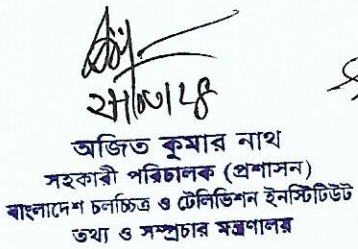 অজিত কুমার নাথ
সহকারী পরিচালক (প্রশাসন)
বাংলাদেশ চলচ্চিত্র ও টেলিভিশন ইনস্টিটিউট
তথ্য ও সম্প্রচার মন্ত্রণালয়